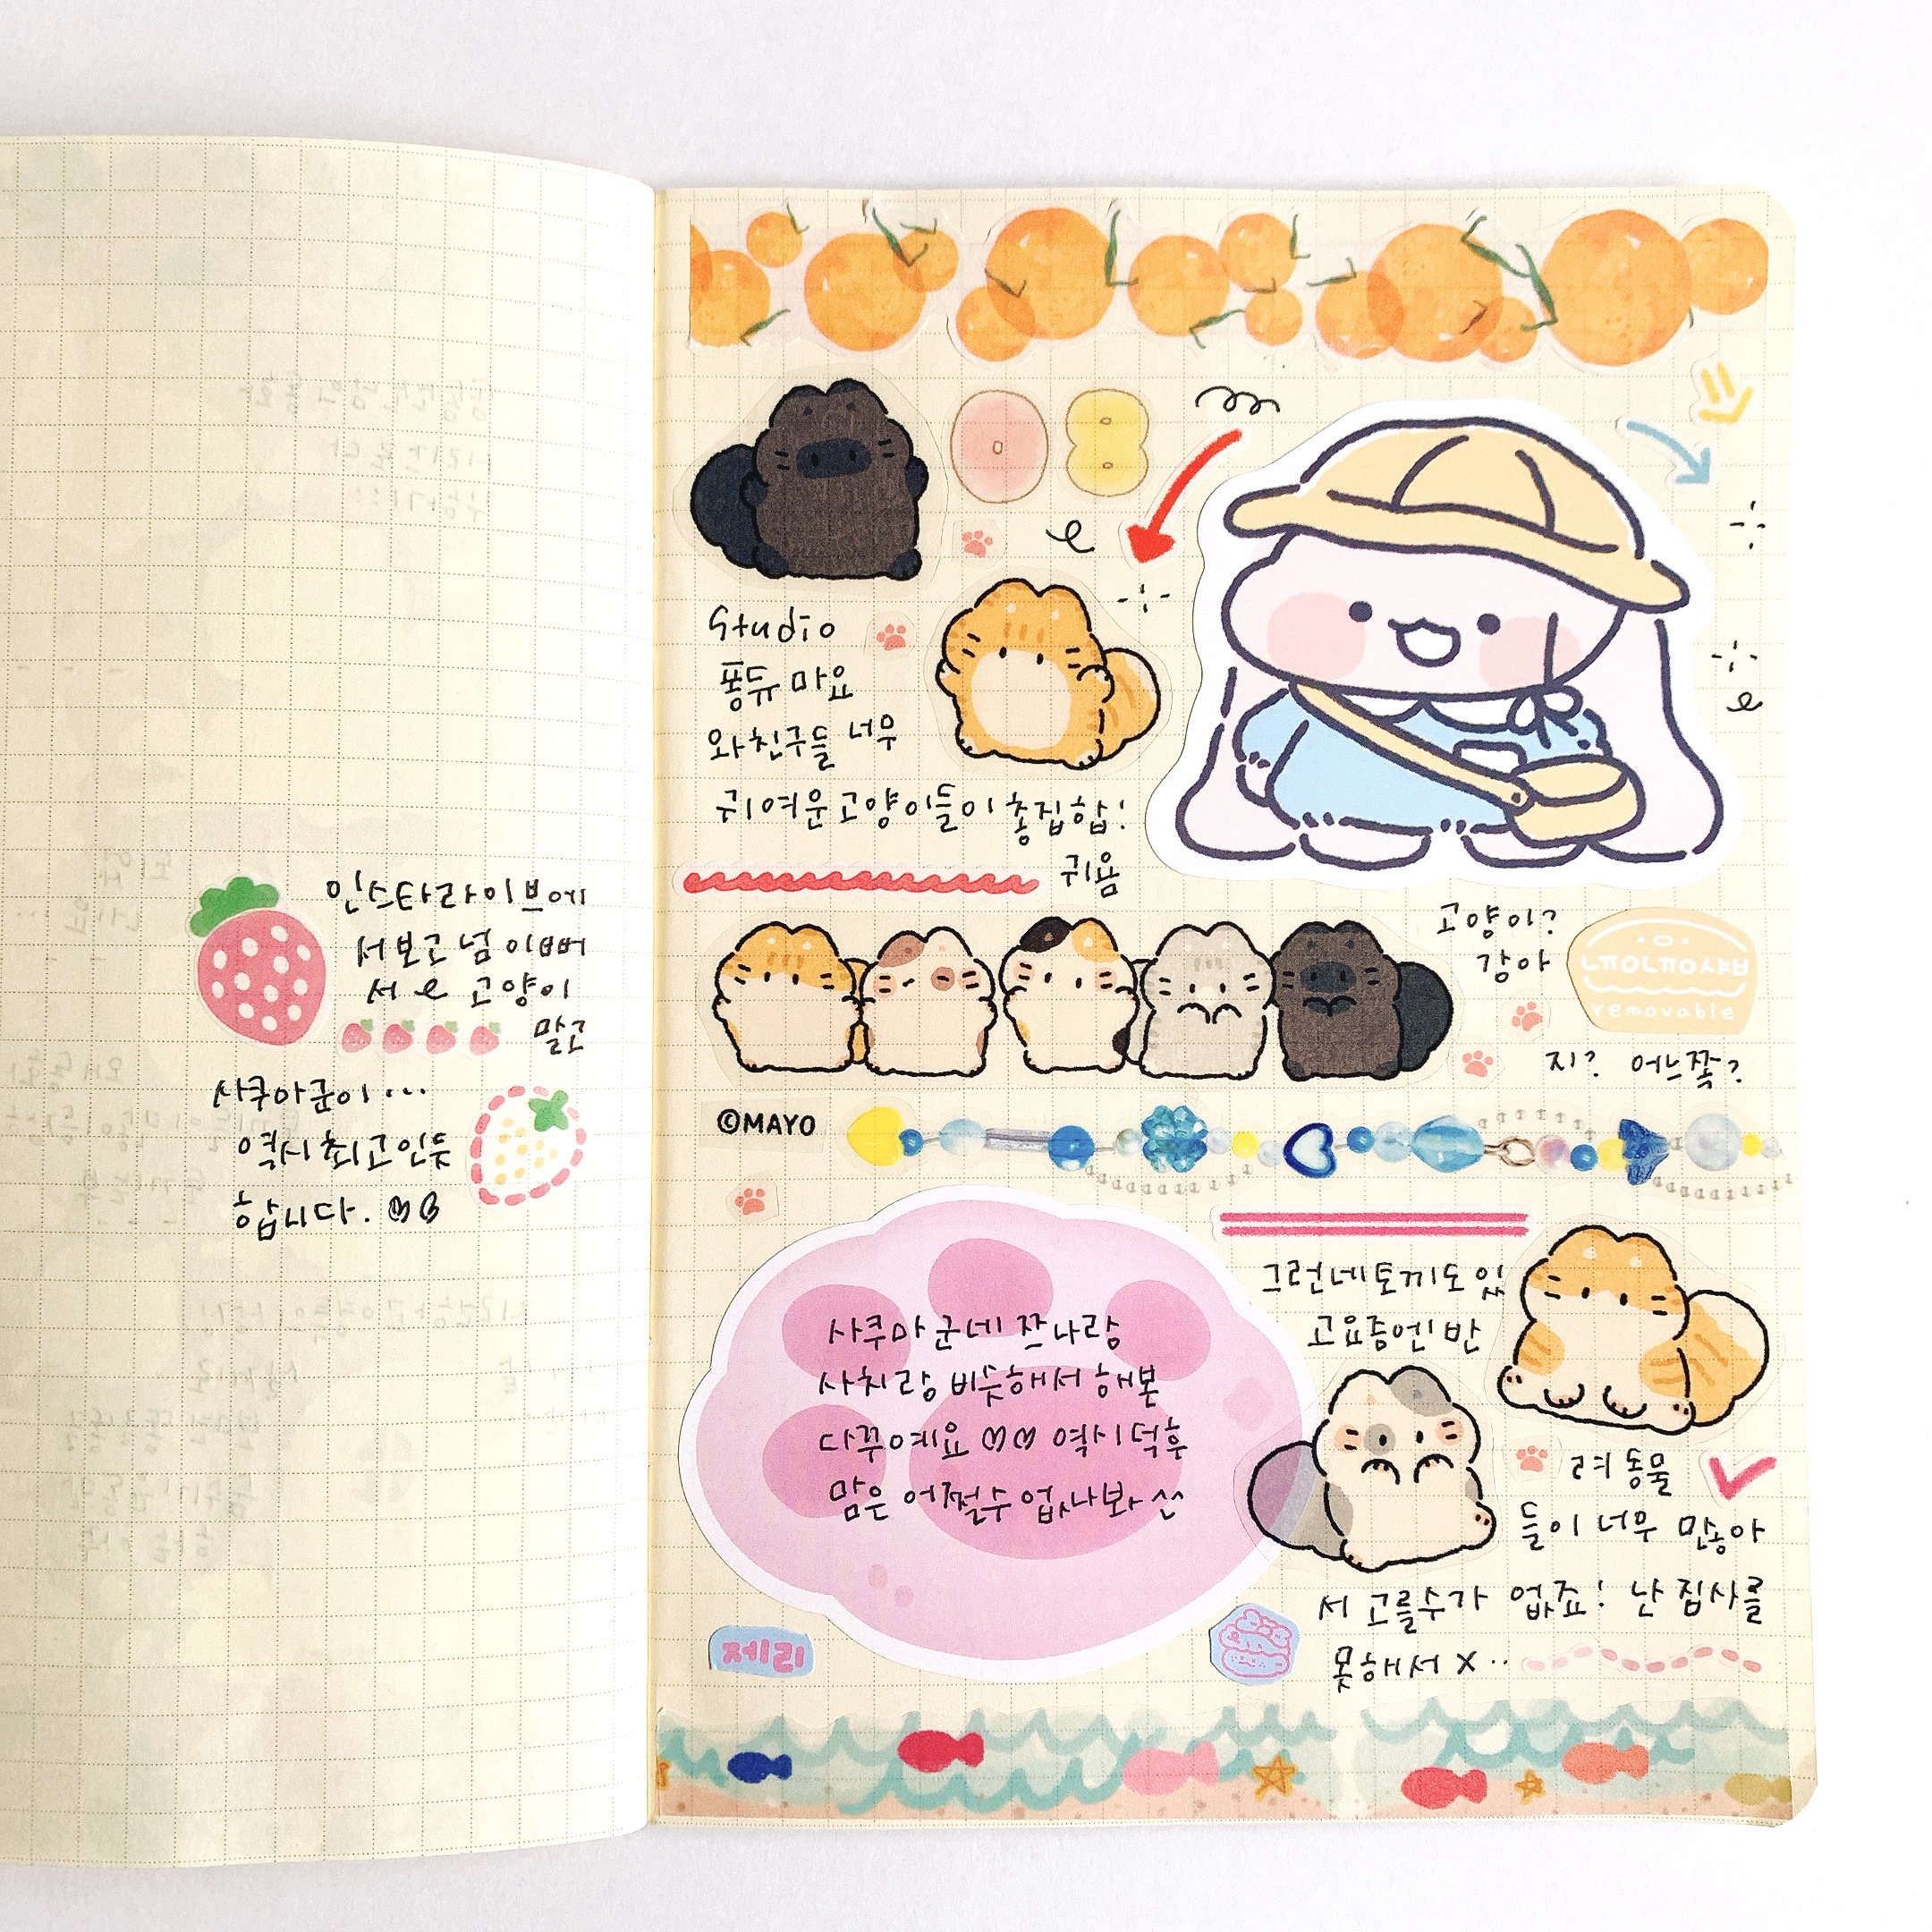 인스타라이브에
서보고 넘 이뻐
서 고양이
말고
사쿠아군이...
역시 최고인듯
합니다.
Studio
퐁듀 마요
와 친구들 너무
귀여운 고양이들이 총집합!
귀욤
고양이?
강아
지? 어느쪽?
냠얌냠얌샤뵤
removable
©MAYO
사쿠마 군네 쯔나랑
사치랑 비슷해서 해본
다꾸예요 역시 덕후
맘은 어쩔수 없나봐
그런네 토끼도 있
고 요즘엔 반
려 동물
들이 너무 많아
서 고를수가 없죠! 난 집사를
못해서 x..
제리